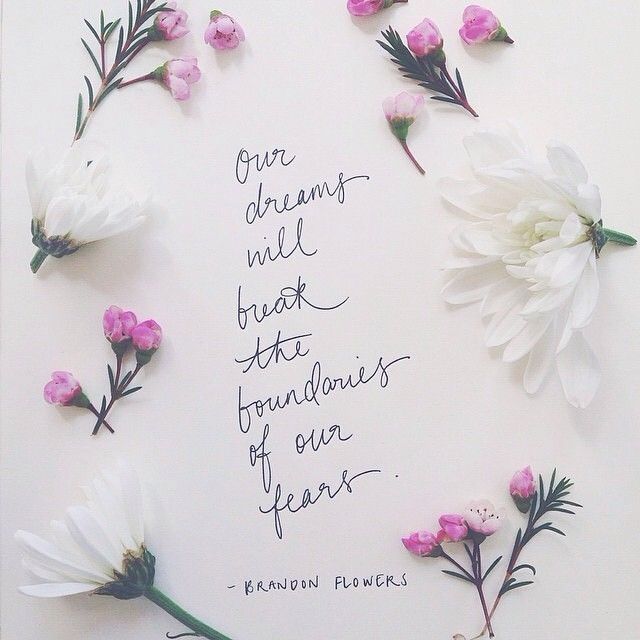 Our
dreams
will
break
the
boundaries
of our
fears.
- BRANDON FLOWERS